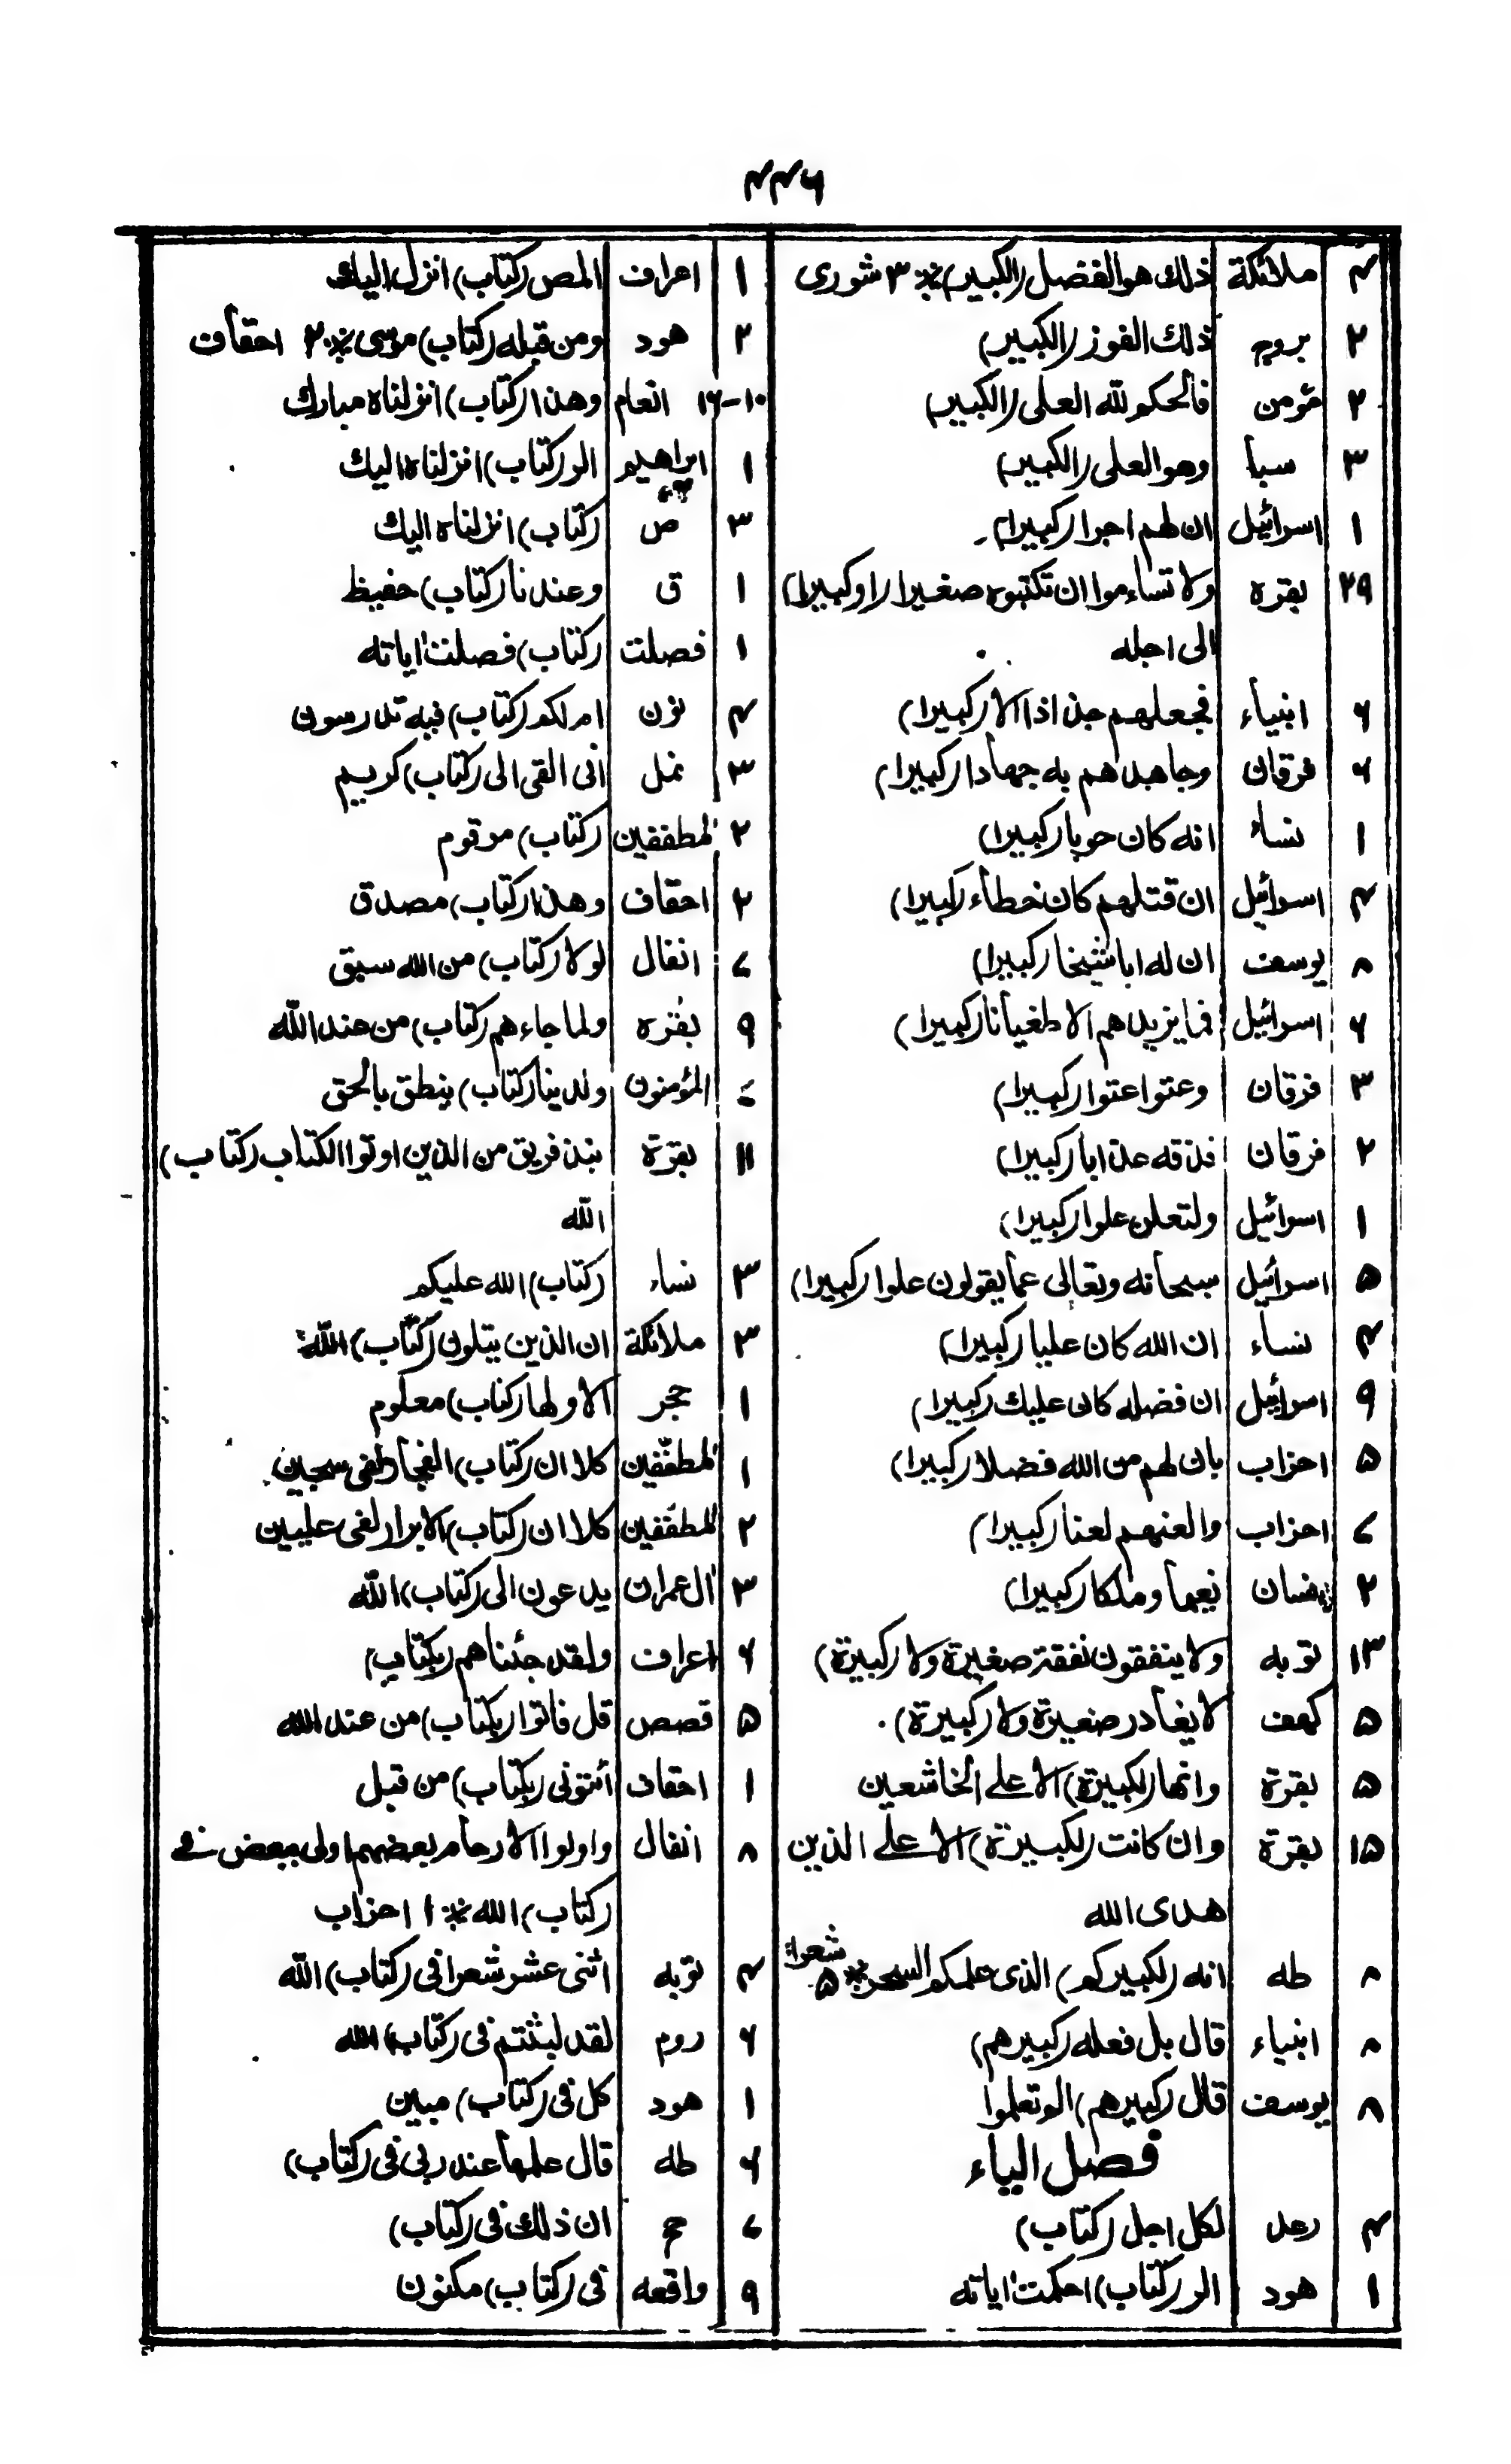 ٤ ملائكة ذلك هو الفضل (الكبير) ٭ ٣ شورى
٢ بروج ذلك الفوز (الكبير)
٢ مؤمن فالحكم لله العلى (الكبير)
٣ سبأ وهو العلى (الكبير)
١ اسرائيل ان لهم اجرا (كبيرا)
٣٩ بقره ولا تساءموا ان تكتبوه صغيرا (او كبيرا)
الى اجله
٦ انبياء فجعلهم جذاذا الا (كبيرا)
٦ فرقان وجاهدهم به جهادا (كبيرا)
١ نساء انه كان حوبا (كبيرا)
٤ اسرائيل ان قتلهم كان خطاء (كبيرا)
٨ يوسف ان له ابا شيخا (كبيرا)
٦ اسرائيل فما يزيدهم الا طغيانا (كبيرا)
٣ فرقان وعتوا عتوا (كبيرا)
٢ فرقان نذقه عذابا (كبيرا)
١ اسرائيل ولتعلن علوا (كبيرا)
٥ اسرائيل سبحانه وتعالى عما يقولون علوا (كبيرا)
٤ نساء ان الله كان عليا (كبيرا)
٩ اسرائيل ان فضله كان عليك (كبيرا)
٥ احزاب بان لهم من الله فضلا (كبيرا)
٧ احزاب والعنهم لعنا (كبيرا)
٢ نعيما وملكا (كبيرا)
١٣ توبه ولا ينفقون نفقة صغيرة ولا (كبيرة)
٥ كهف لا يغادر صغيرة ولا (كبيرة)
٥ بقرة وانها (لكبيرة) الا على الخاشعين
١٥ بقرة وان كانت (لكبيرة) الا على الذين
هدى الله
٨ طه انه (لكبيركم) الذى علمكم السحر ٭ ٥ شعراء
٨ انبياء قال بل فعله (كبيرهم)
٨ يوسف قال (كبيرهم) الو تعلموا
فصل الياء
٤ رعد لكل اجل (كتاب)
١ هود الر (كتاب) احكمت اياته
١ اعراف المص (كتاب) انزل اليك
٢ هود ومن قبله (كتاب) موسى ٭ ٢ احقاف
١٠-١٦ انعام وهذا (كتاب) انزلناه مبارك
١ ابراهيم الر (كتاب) انزلناه اليك
٣ ص (كتاب) انزلناه اليك
١ ق وعندنا (كتاب) حفيظ
١ فصلت (كتاب) فصلت اياته
٤ نون ام لكم (كتاب) فيه تدرسون
٣ نمل انى القى الى (كتاب) كريم
٢ المطففين (كتاب) مرقوم
٢ احقاف وهذا (كتاب) مصدق
٧ انفال لولا (كتاب) من الله سبق
٩ بقره ولما جاءهم (كتاب) من عند الله
المؤمنون ولدينا (كتاب) ينطق بالحق
١١ بقرة نبذ فريق من الذين اوتوا الكتاب (كتاب)
الله
٣ نساء (كتاب) الله عليكم
٣ ملائكة ان الذين يتلون (كتاب) الله
١ حجر الا ولها (كتاب) معلوم
١ المطففين كلا ان (كتاب) الفجار لفى سجين
٢ المطففين كلا ان (كتاب) الابرار لفى عليين
٣ ال عمران يدعون الى (كتاب) الله
٦ اعراف ولقد جئناهم (بكتاب)
٥ قصص قل فاتوا (بكتاب) من عند الله
١ احقاف ائتونى (بكتاب) من قبل
٨ انفال واولوا الارحام بعضهم اولى ببعض فى
(كتاب) الله ٭ ١ احزاب
٤ توبه اثنى عشر شهرا فى (كتاب) الله
٦ روم لقد لبثتم فى (كتاب) الله
١ هود كل فى (كتاب) مبين
٦ طه قال علمها عند ربى فى (كتاب)
٧ حج ان ذلك فى (كتاب)
٩ واقعه فى (كتاب) مكنون